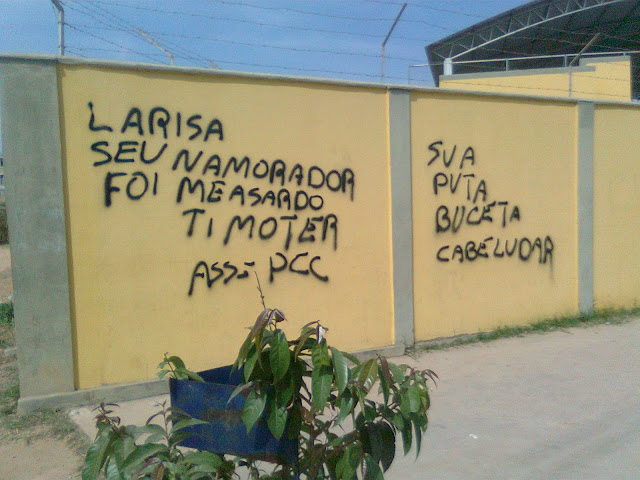 LARISA
SEU NAMORADOR
FOI MEASARDO
TIMOTER
ASS- PCC
SUA
PUTA
BUCETA
CABELUDAR